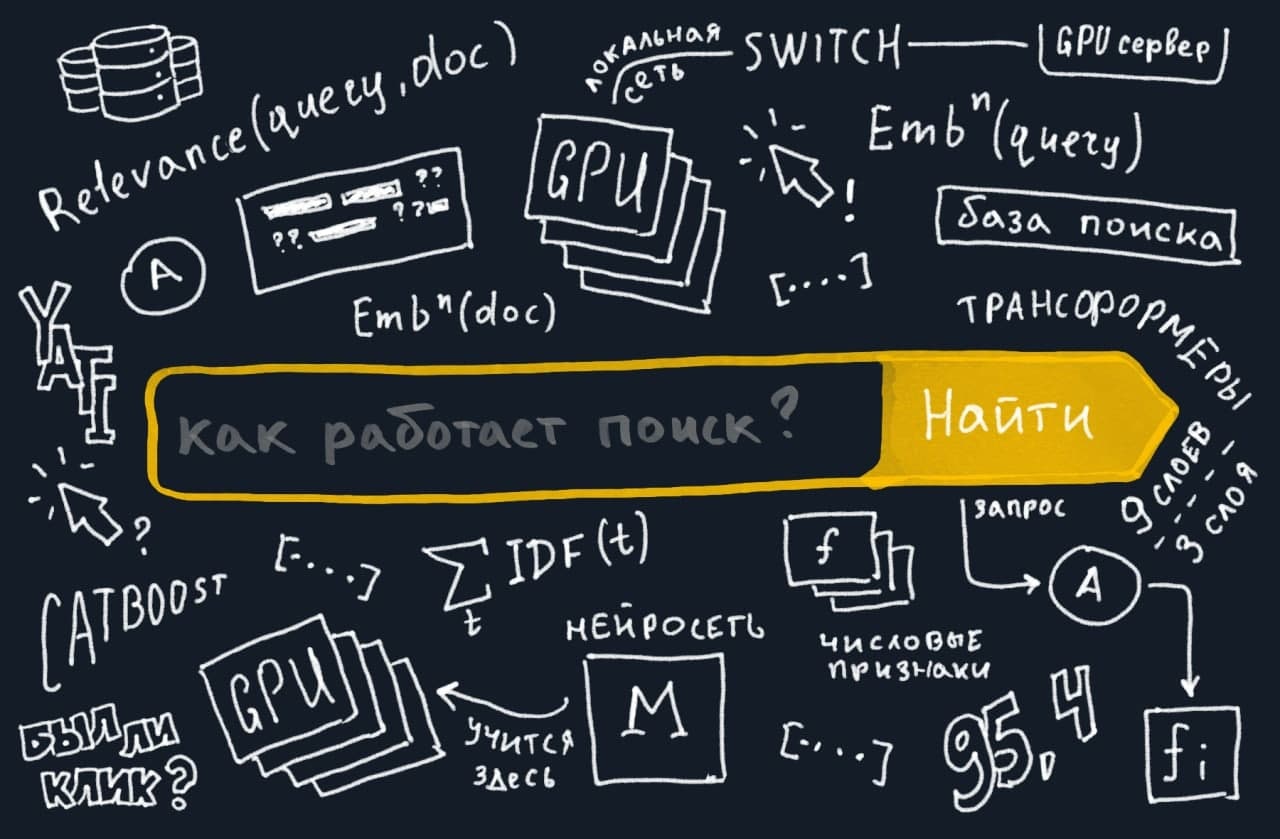 ЛОКАЛЬНАЯ
СЕТЬ
SWITCH
GPU сервер
Relevance(query, doc)
GPU
!
Emb^n(query)
?? 
? ?
??
база поиска
A
[....]
YATI
Emb^n(doc)
ТРАНСФОРМЕРЫ
как работает поиск?
Найти
9 СЛОЕВ
3 СЛОЯ
?
ЗАПРОС
[....]
∑ IDF(t)
t
f
A
CATBOOST
НЕЙРОСЕТЬ
ЧИСЛОВЫЕ
ПРИЗНАКИ
GPU
M
УЧИТСЯ
ЗДЕСЬ
[....]
95.4
f i
БЫЛ ЛИ
КЛИК?